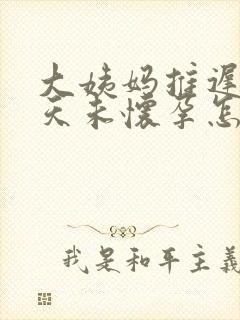 大姨妈推遲
天未懷孕怎
我是和平主義